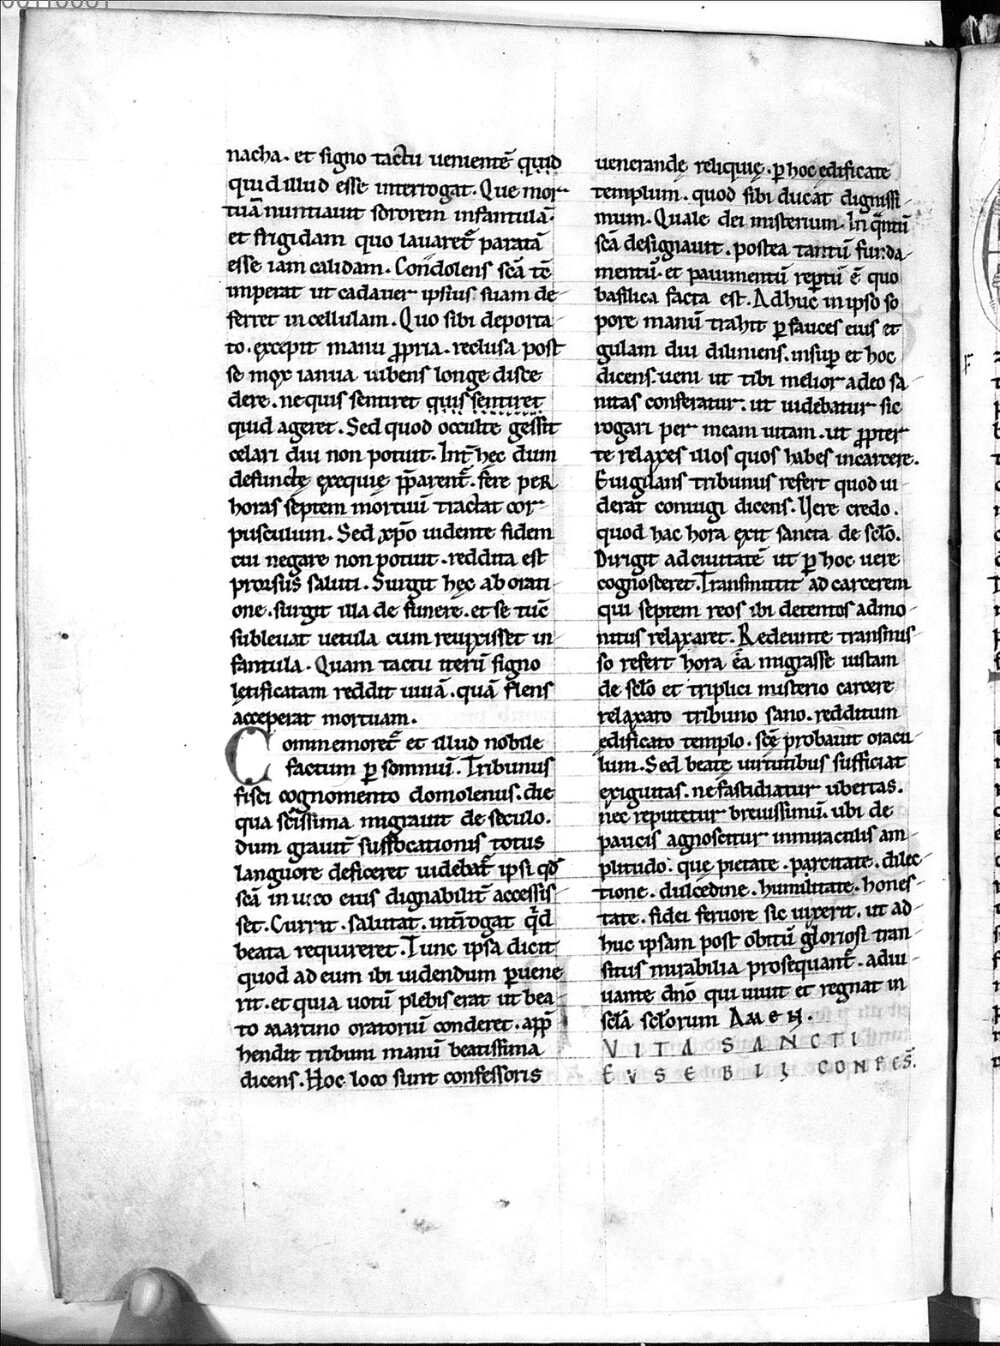 nacha. et signo tactu uenientē quid
quid illud esse interrogat. Que mor-
tuā nuntiauit sororem infantulā.
et frigidam quo lauaret᷑ paratā
esse iam calidam. Condolens scā tē
imperat ut cadauer ipsius suam de-
ferret in cellulam. Quo sibi deporta-
to. excepit manu ꝓpria. reclusa post
se mox ianua iubens longe disce
dere. ne quis sentiret quis sentiret
quid ageret. Sed quod occulte gessit
celari diu non potuit. Int᷑ hęc dum
defunctę exequię p̄parent᷑. fere peR
horas septem mortuū tractat cor-
pusculum. Sed xp̄o uidente fidem
cui negare non potuit. reddita est
prorsus saluti. Surgit hęc ab orati
one. surgit illa de funere. et se tūc
subleuat uetula cum reuixisset in-
fantula. Quam tactu iterū signo
letificatam reddit uiuā. quā flens
acceperat mortuam.
Commemoret᷑ et illud nobile
factum ꝑ somnuī. Tribunus
fisci cognomento domolenus. die
qua scīssima migrauit de seculo.
dum grauit᷑ suffocationis totus
languore deficeret uidebat᷑ ipsi qđ
scā in uico eius dignabilit᷑ accessis-
set. Currit. salutat. int᷑rogat q̄d
beata requireret. Tunc ipsa dicit
quod ad eum ibi uidendum ꝑuene
rit. et quia uotū plebis erat ut bea-
to martino oratoriū conderet. app̄
hendit tribuni manū beatissima
dicens. Hoc loco sunt confessoris
uenerande reliquię. ꝑ hoc edificate
templum. quod sibi ducat dignissi
mum. Quale dei misterium. In q̄ntū
scā designauit. postea tantū funda-
mentū. et pauimentū reꝑtū ē quo
basilica facta est. Adhuc in ipso so
pore manū trahit ꝑ fauces eius et
gulam diu diliniens. insuꝑ et hoc
dicens. ueni ut tibi melior a deo sa
nitas conferatur. ut uidebatur sic
rogari per meam uitam. ut ꝓpter
te relaxes illos quos habes in carcere.
Euigilans tribunus refert quod ui-
derat coniugi dicens. Uere credo.
quod hac hora exit sancta de sclō.
Dirigit ad ciuitatē ut ꝑ hoc uere
cognosceret. Transmittit ad carcerem
qui septem reos ibi detentos admo-
nitus relaxaret. Redeunte transmis-
so refert hora ea migrasse iustam
de sclō et triplici misterio carcere
relaxato tribuno sano. redditum
edificato templo. scē probauit oracu
lum. Sed beatę uirtutibus sufficiat
exiguitas. ne fastidiatur ubertas.
nec reputetur breuissimū. ubi de
paucis agnoscitur in miraculis am
plitudo. que pietate. parcitate. dilec-
tione. dulcedine. humilitate. hones-
tate. fidei feruore sic uixerit. ut ad-
huc ipsam post obitū gloriosi tran-
situs mirabilia prosequant᷑. adiu-
uante dn̄o qui uiuit et regnat in
sclā sclorum AMEN.
VITA SANCTI
EVSEBII CONFES̄.